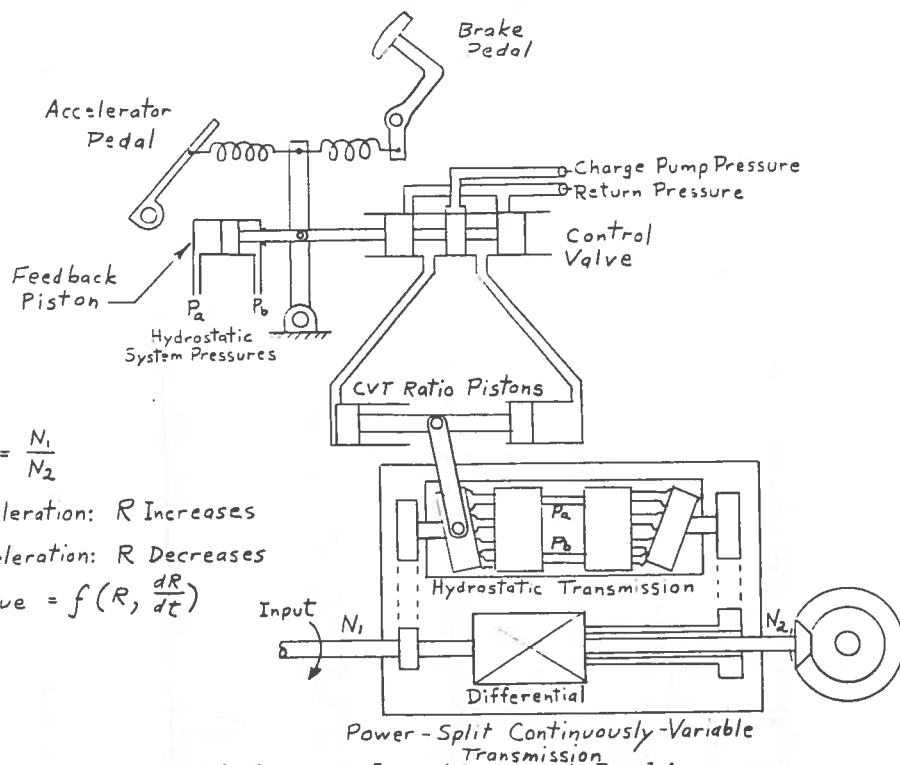 Brake
Pedal
Accelerator
Pedal
Charge Pump Pressure
Return Pressure
Control
Valve
Feedback
Piston
Pa
Pb
Hydrostatic
System Pressures
CVT Ratio Pistons
= N1
N2
leration: R Increases
eleration: R Decreases
ue = f (R, dR
dt)
Pa
Pb
Hydrostatic Transmission
Input
N1
N2
Differential
Power-Split Continuously-Variable
Transmission